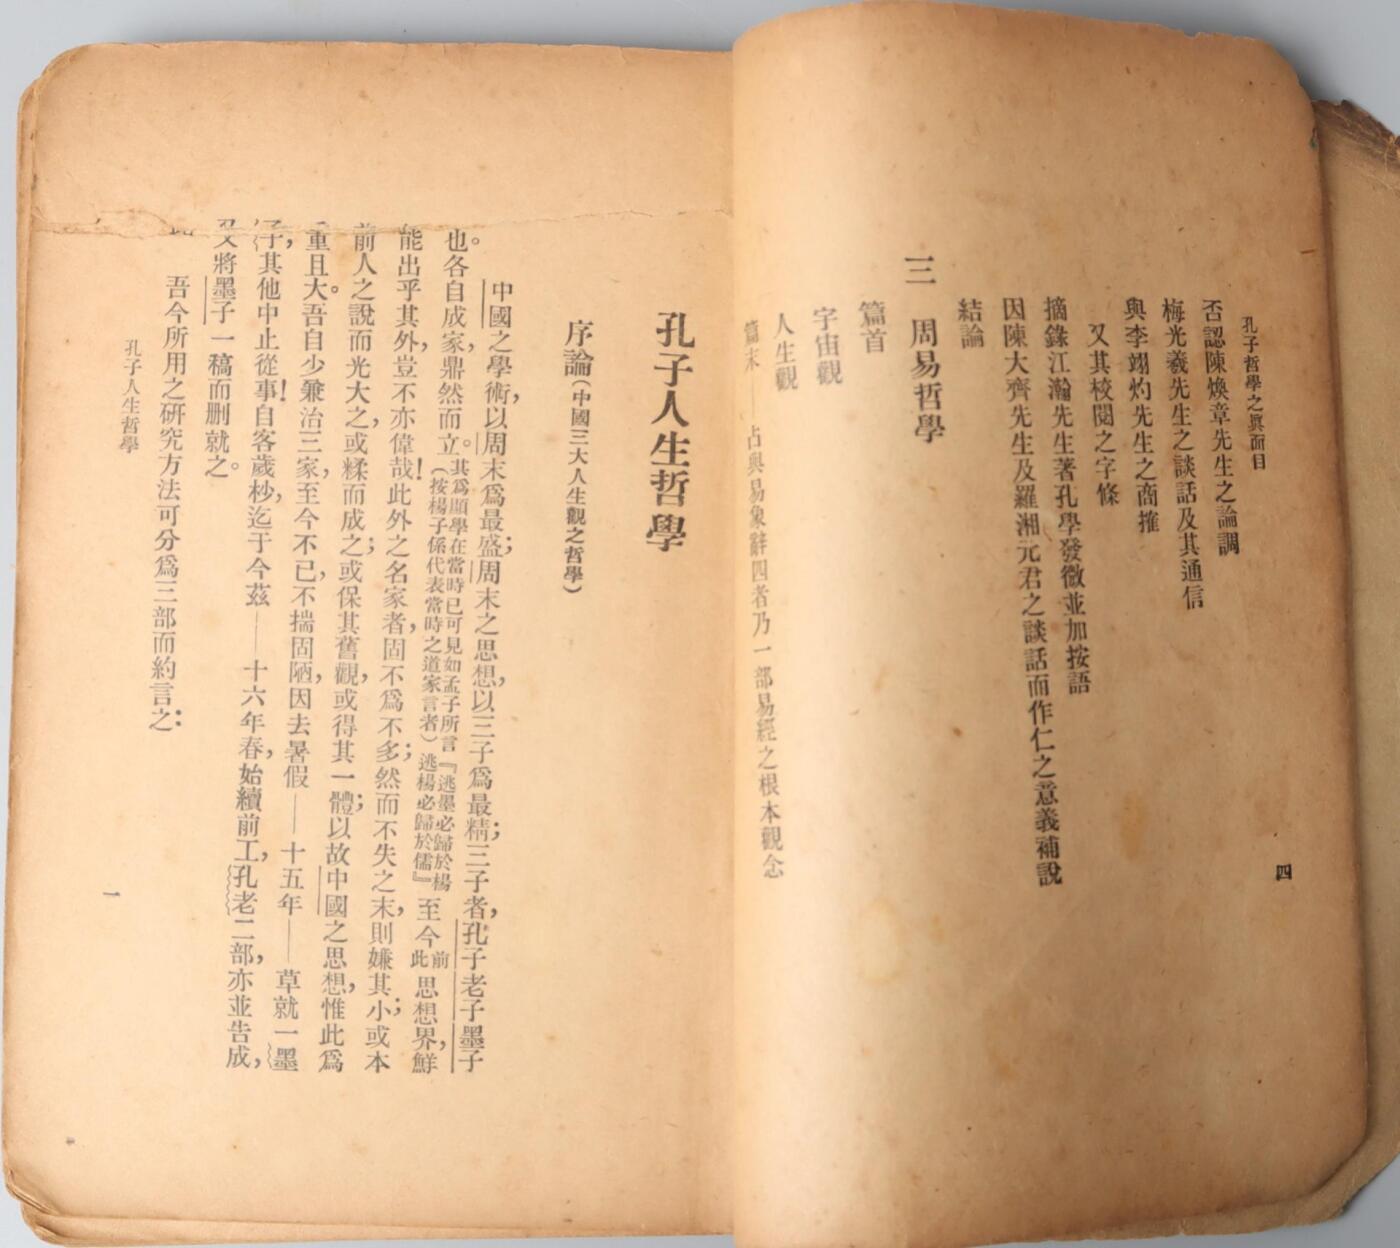 孔子哲學之眞面目
四
否認陳煥章先生之論調
梅光羲先生之談話及其通信
與李翊灼先生之商搉
又其校閱之字條
摘錄江瀚先生著孔學發微並加按語
因陳大齊先生及羅湘元君之談話而作仁之意義補說
結論
三 周易哲學
篇首
宇宙觀
人生觀
篇末——占與易象辭四者乃一部易經之根本觀念
孔子人生哲學
序論(中國三大人生觀之哲學)
中國之學術,以周末爲最盛;周末之思想,以三子爲最精;三子者,孔子老子墨子
也。各自成家,鼎然而立。(其爲顯學在當時已可見如孟子所言『逃墨必歸於楊逃楊必歸於儒』(按楊子係代表當時之道家言者)至今前此思想界,鮮
能出乎其外,豈不亦偉哉!此外之名家者,固不爲不多;然而不失之末,則嫌其小;或本
前人之說而光大之,或糅而成之;或保其舊觀,或得其一體;以故中國之思想,惟此爲
重且大。吾自少兼治三家,至今不已,不揣固陋,因去暑假——十五年——草就一墨
子,其他中止從事!自客歲杪,迄于今茲——十六年春,始續前工,孔老二部,亦並告成,
又將墨子一稿而删就之。
吾今所用之研究方法可分爲三部而約言之:
孔子人生哲學
一